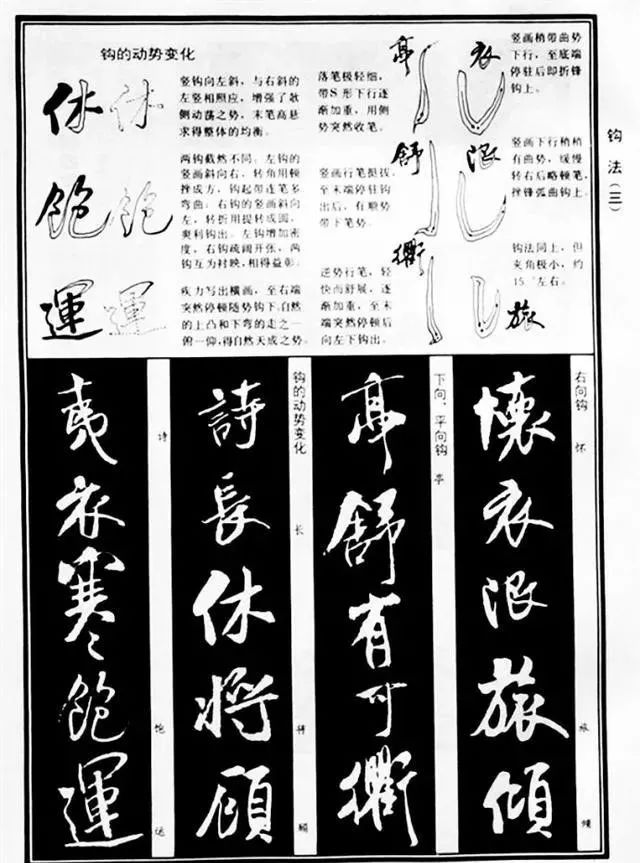 钩法（三）
衣
竖画稍带曲势
下行，至底端
停驻后即折锋
钩上。
泯
竖画下行稍稍
有曲势，缓慢
转右后略顿笔，
挫锋弧曲钩上。
旅
钩法同上，但
夹角极小，约
15°左右。
亭
落笔极轻细，
带S形下行逐
渐加重，用侧
势突然收笔。
舒
竖画行笔挺拔，
至末端停驻钩
出后，有顺势
带下笔势。
衢
逆势行笔，轻
快而舒展，逐
渐加重，至末
端突然停顿后
向左下钩出。
钩的动势变化
休休
竖钩向左斜，与右斜的
左竖相照应，增强了欹
侧动荡之势，末笔高悬
求得整体的均衡。
飽飽
两钩截然不同。左钩的
竖画斜向右，转角用顿
挫成方，钩起带连笔多
弯曲。右钩的竖画斜向
左，转折用提转成圆，
奥利钩出。左钩增加密
度，右钩疏阔开张，两
钩互为衬映，相得益彰。
運運
疾力写出横画，至右端
突然停顿随势钩下，自然
的上凸和下弯的走之一
俯一仰，得自然天成之势。
右向钩 怀 旅 倾
懷衣泯旅傾
下向、平向钩 亭
亭舒有可衢
钩的动势变化 长 将 顾
詩長休將顧
诗 饱 运
夷衣寒飽運